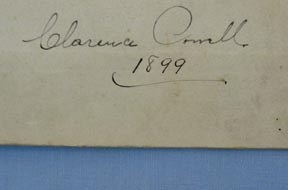 Clarence Powell
1899